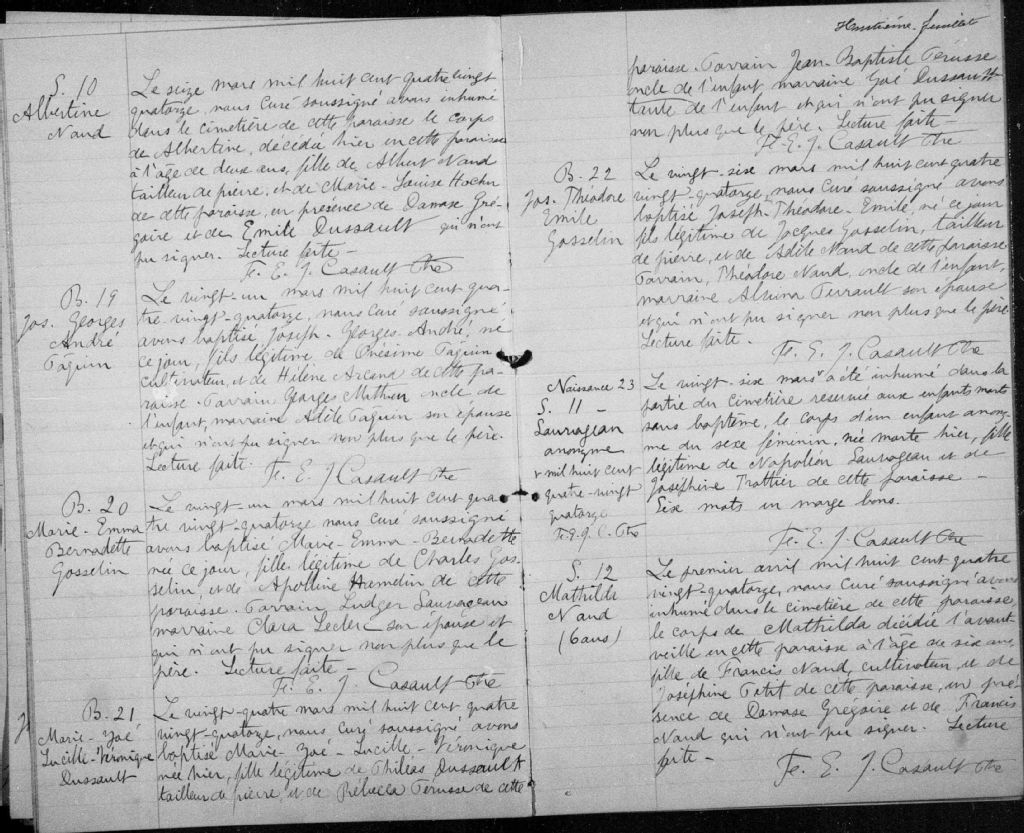 S. 10
Albertine
Naud
Le seize mars mil huit cent quatre vingt
quatorze, nous Curé soussigné avons inhumé
dans le cimetière de cette paroisse le corps
de Albertine, décédée hier en cette paroisse
à l'âge de deux ans, fille de Albert Naud
tailleur de pierre, et de Marie-Louise
de cette paroisse, en présence de Damase Gré-
goire et de Emile Dussault qui n'ont
pu signer. Lecture faite -
F. E. J. Casault Ptre
B. 19
Jos. Georges
André
Paquin
Le vingt-un mars mil huit cent qua-
tre-vingt-quatorze, nous Curé soussigné,
avons baptisé Joseph-Georges-André né
ce jour, fils légitime de Onésime Paquin
cultivateur, et de Hélène Arcand de cette pa-
roisse. Parrain Georges Mathieu oncle de
l'enfant, marraine Adèle Paquin son épouse
et qui n'ont pu signer non plus que le père.
Lecture faite.
F. E. J. Casault Ptre
B. 20
Marie-Emma
Bernadette
Gosselin
Le vingt-un mars mil huit cent qua-
tre vingt-quatorze nous curé soussigné
avons baptisé Marie-Emma-Bernadette
née ce jour, fille légitime de Charles Gos-
selin, et de Apolline Hamelin de cette
paroisse. Parrain Ludger Sauvageau
marraine Clara Leclerc son épouse et
qui n'ont pu signer non plus que le
père. Lecture faite -
F. E. J. Casault Ptre
B. 21
Marie-Zoé
Lucille-Véronique
Dussault
Le vingt-quatre mars mil huit cent quatre
vingt-quatorze, nous curé soussigné avons
baptisé Marie-Zoé-Lucille-Véronique
née hier, fille légitime de Philéas Dussault
tailleur de pierre, et de Rébecca Perusse de cette
Huitième feuillet
paroisse. Parrain Jean-Baptiste Perusse
oncle de l'enfant, marraine Zoé Dussault
tante de l'enfant et qui n'ont pu signer
non plus que le père. Lecture faite -
F. E. J. Casault Ptre
B. 22
Jos. Théodore
Emile
Gosselin
Le vingt-six mars mil huit cent quatre
vingt-quatorze, nous Curé soussigné avons
baptisé Joseph-Théodore-Emile, né ce jour
fils légitime de Jacques Gosselin, tailleur
de pierre, et de Adèle Naud de cette paroisse
Parrain, Théodore Naud, oncle de l'enfant,
marraine Alvina Perrault son épouse
et qui n'ont pu signer non plus que le père
Lecture faite.
F. E. J. Casault Ptre
Naissance 23
S. 11 -
Sauvageau
anonyme
+ mil huit cent
quatre-vingt
quatorze
F. E. J. C. Ptre
Le vingt-six mars + a été inhumé dans la
partie du cimetière réservée aux enfants morts
sans baptême, le corps d'un enfant anony-
me du sexe féminin, née morte hier, fille
légitime de Napoléon Sauvageau et de
Joséphine Trottier de cette paroisse -
Six mots en marge bons.
F. E. J. Casault Ptre
S. 12
Mathilda
Naud
(6 ans)
Le premier avril mil huit cent quatre
vingt-quatorze, nous Curé soussigné avons
inhumé dans le cimetière de cette paroisse,
le corps de Mathilda décédée l'avant
veille en cette paroisse à l'âge de six ans,
fille de Francis Naud, cultivateur, et de
Joséphine Petit de cette paroisse, en pré-
sence de Damase Grégoire et de Francis
Naud qui n'ont pu signer. Lecture
faite -
F. E. J. Casault Ptre